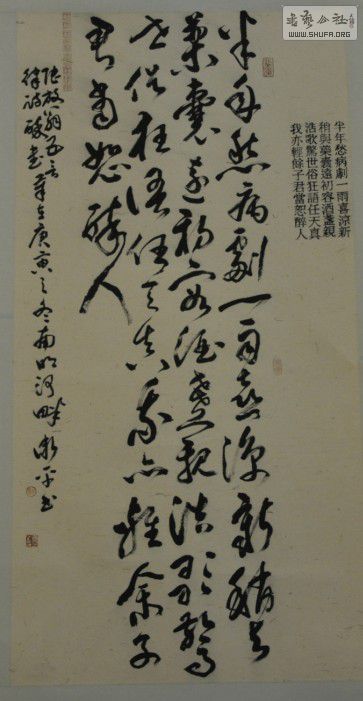 書藝公社
WWW.SHUFA.ORG
半年愁病劇一雨喜涼新
稍與藥囊遠初容酒盞親
浩歌驚世俗狂語任天真
我亦輕餘子君當恕醉人
半年愁病劇一雨喜涼新稍與
藥囊遠初容酒盞親浩歌驚
世俗狂語任天真我亦輕餘子
君當恕醉人
陸放翁五言
律詩醉書庚寅之冬南明河畔平書